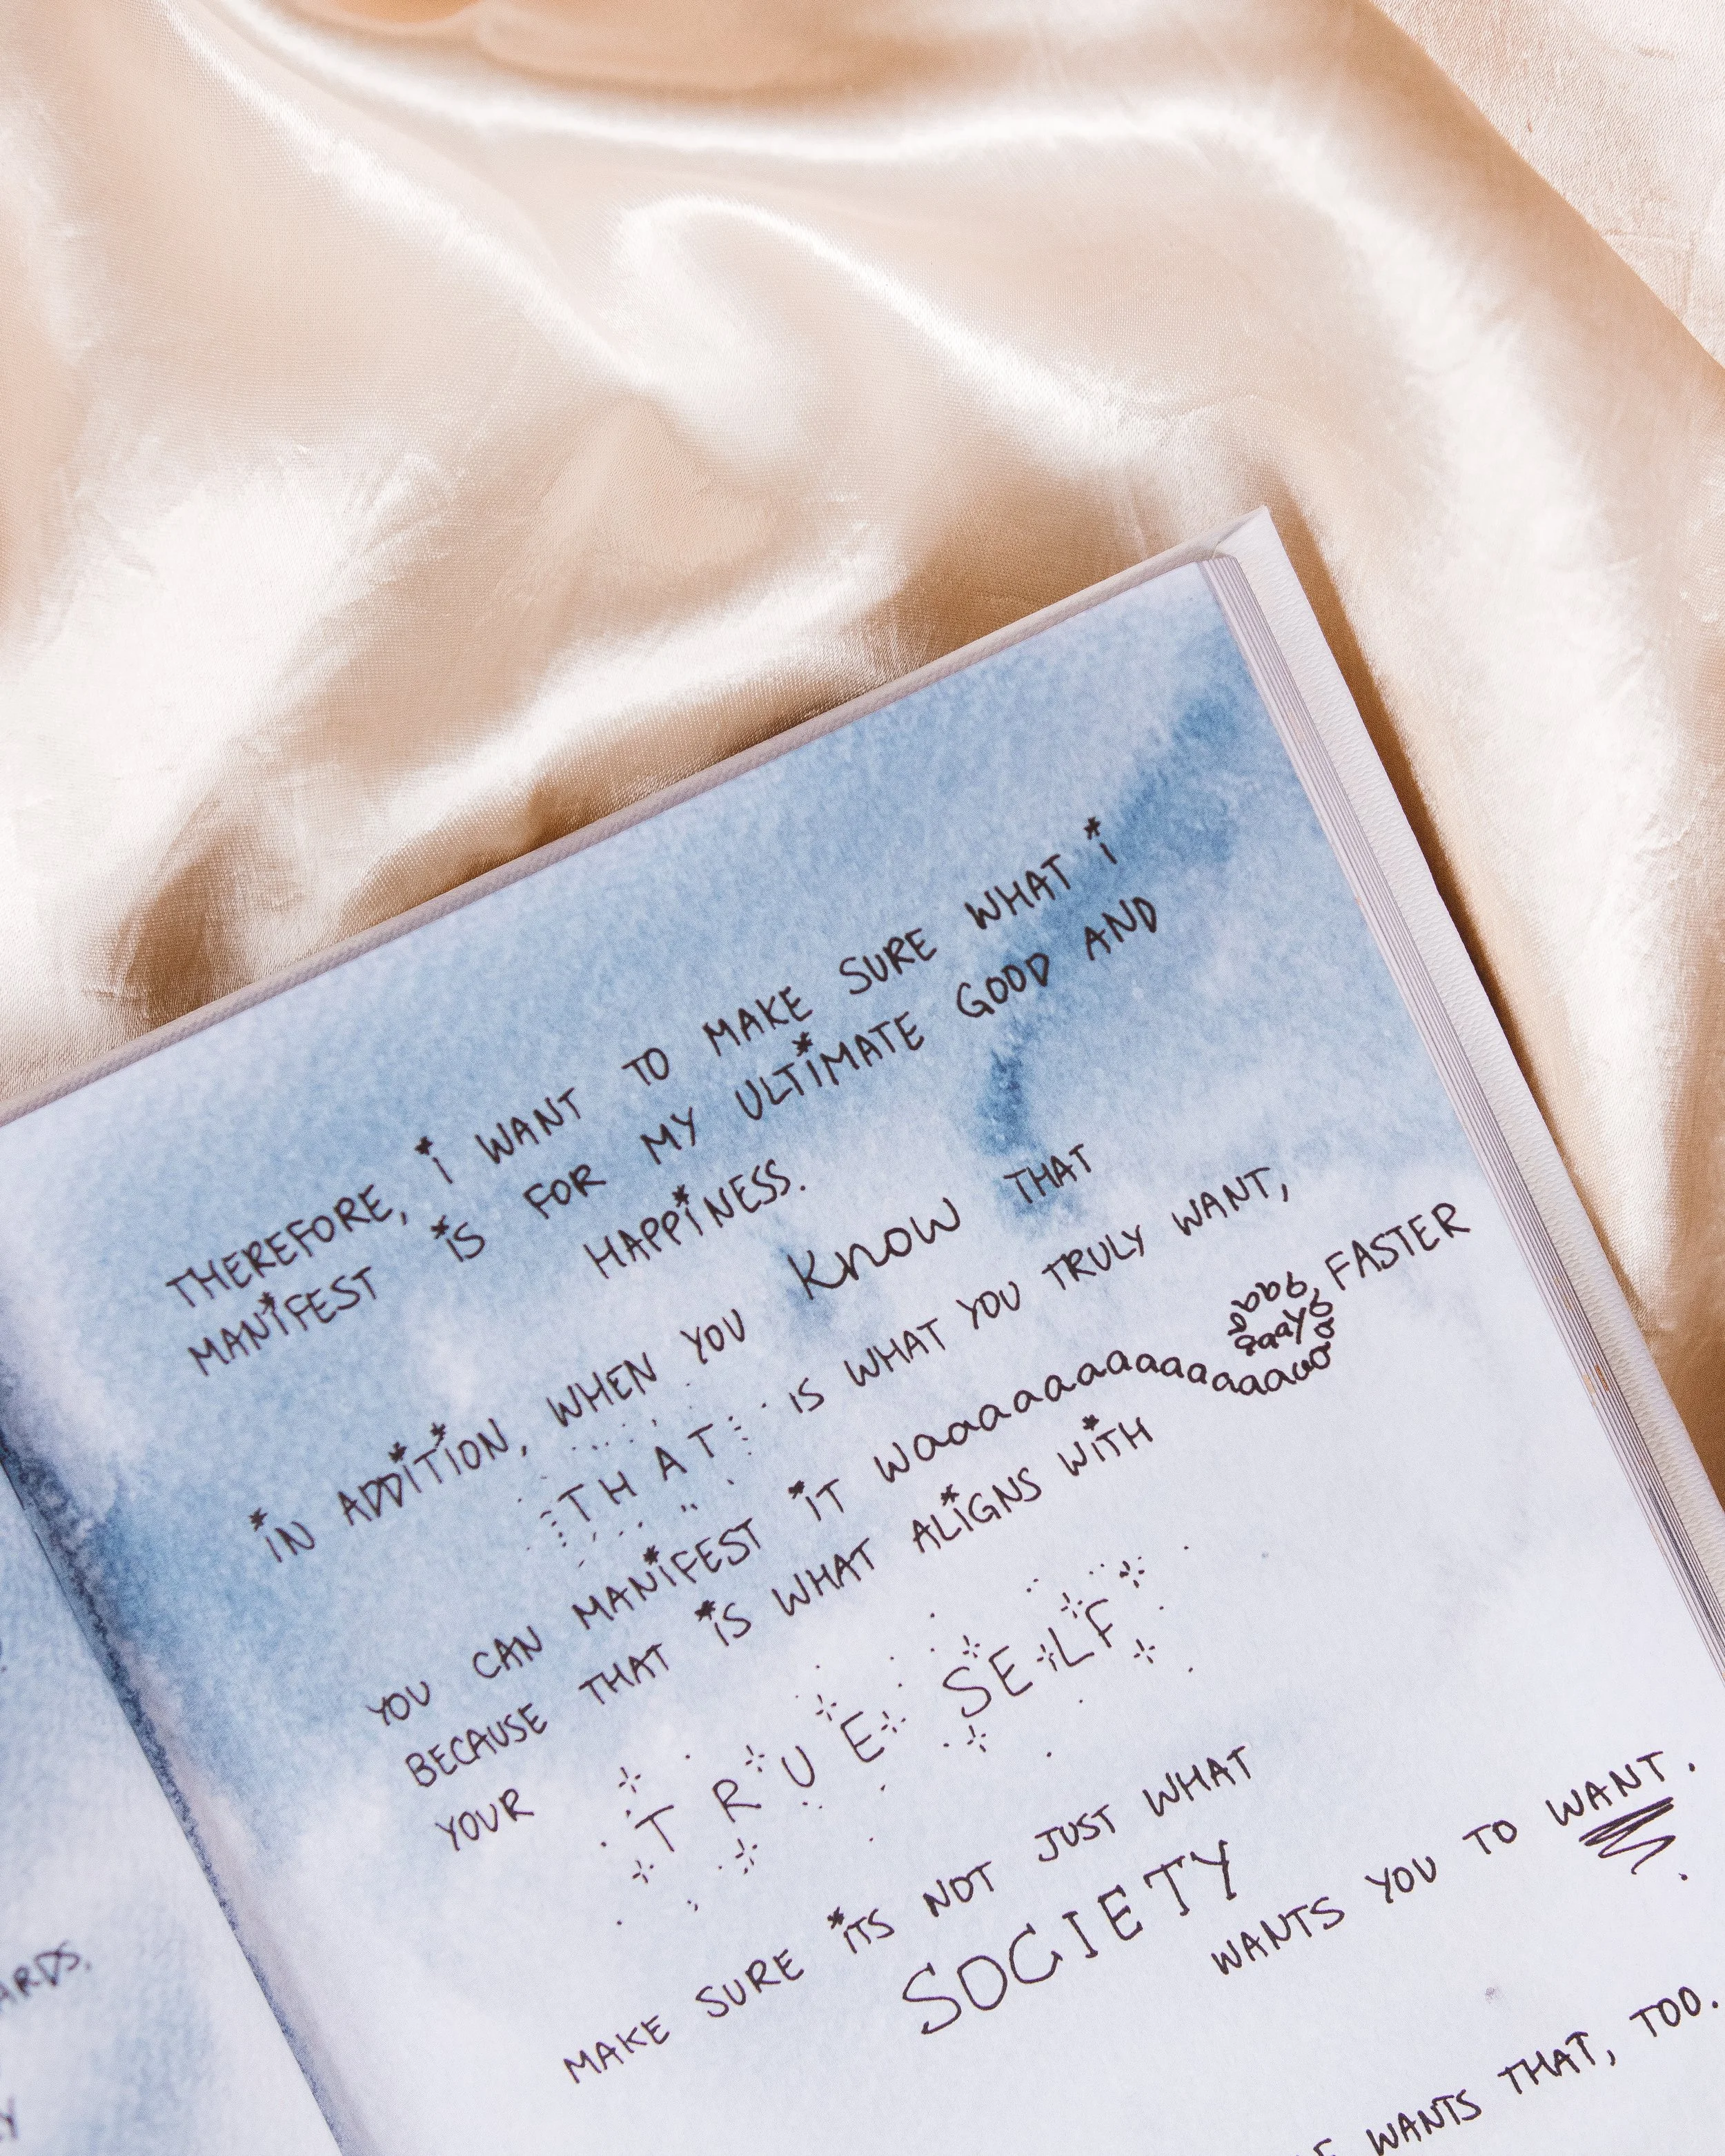 THEREFORE, i WANT TO MAKE SURE WHAT i
MANiFEST iS FOR MY ULTiMATE GOOD AND
HAPPiNESS.
iN ADDiTiON, WHEN YOU KNOW THAT
THAT iS WHAT YOU TRULY WANT,
YOU CAN MANiFEST iT FASTER
BECAUSE THAT iS WHAT ALiGNS WiTH
YOUR TRUE SELF
MAKE SURE iTS NOT JUST WHAT
SOCIETY
WANTS YOU TO WANT.
WANTS THAT, TOO.